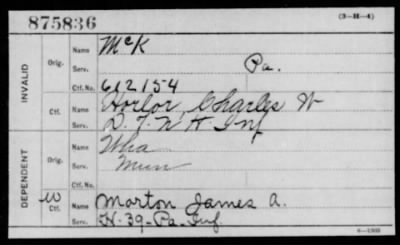 875836 (3—H—4)
INVALID
Orig. Name McK
Serv. Pa.
Ctf. No. 612154
Ctf. Name Horlor, Charles W
Serv. D. 7. N H Inf
DEPENDENT
Orig. Name
Serv.
Ctf. No.
W Ctf. Name Morton James A.
Serv. H. 39 - Pa. Inf.